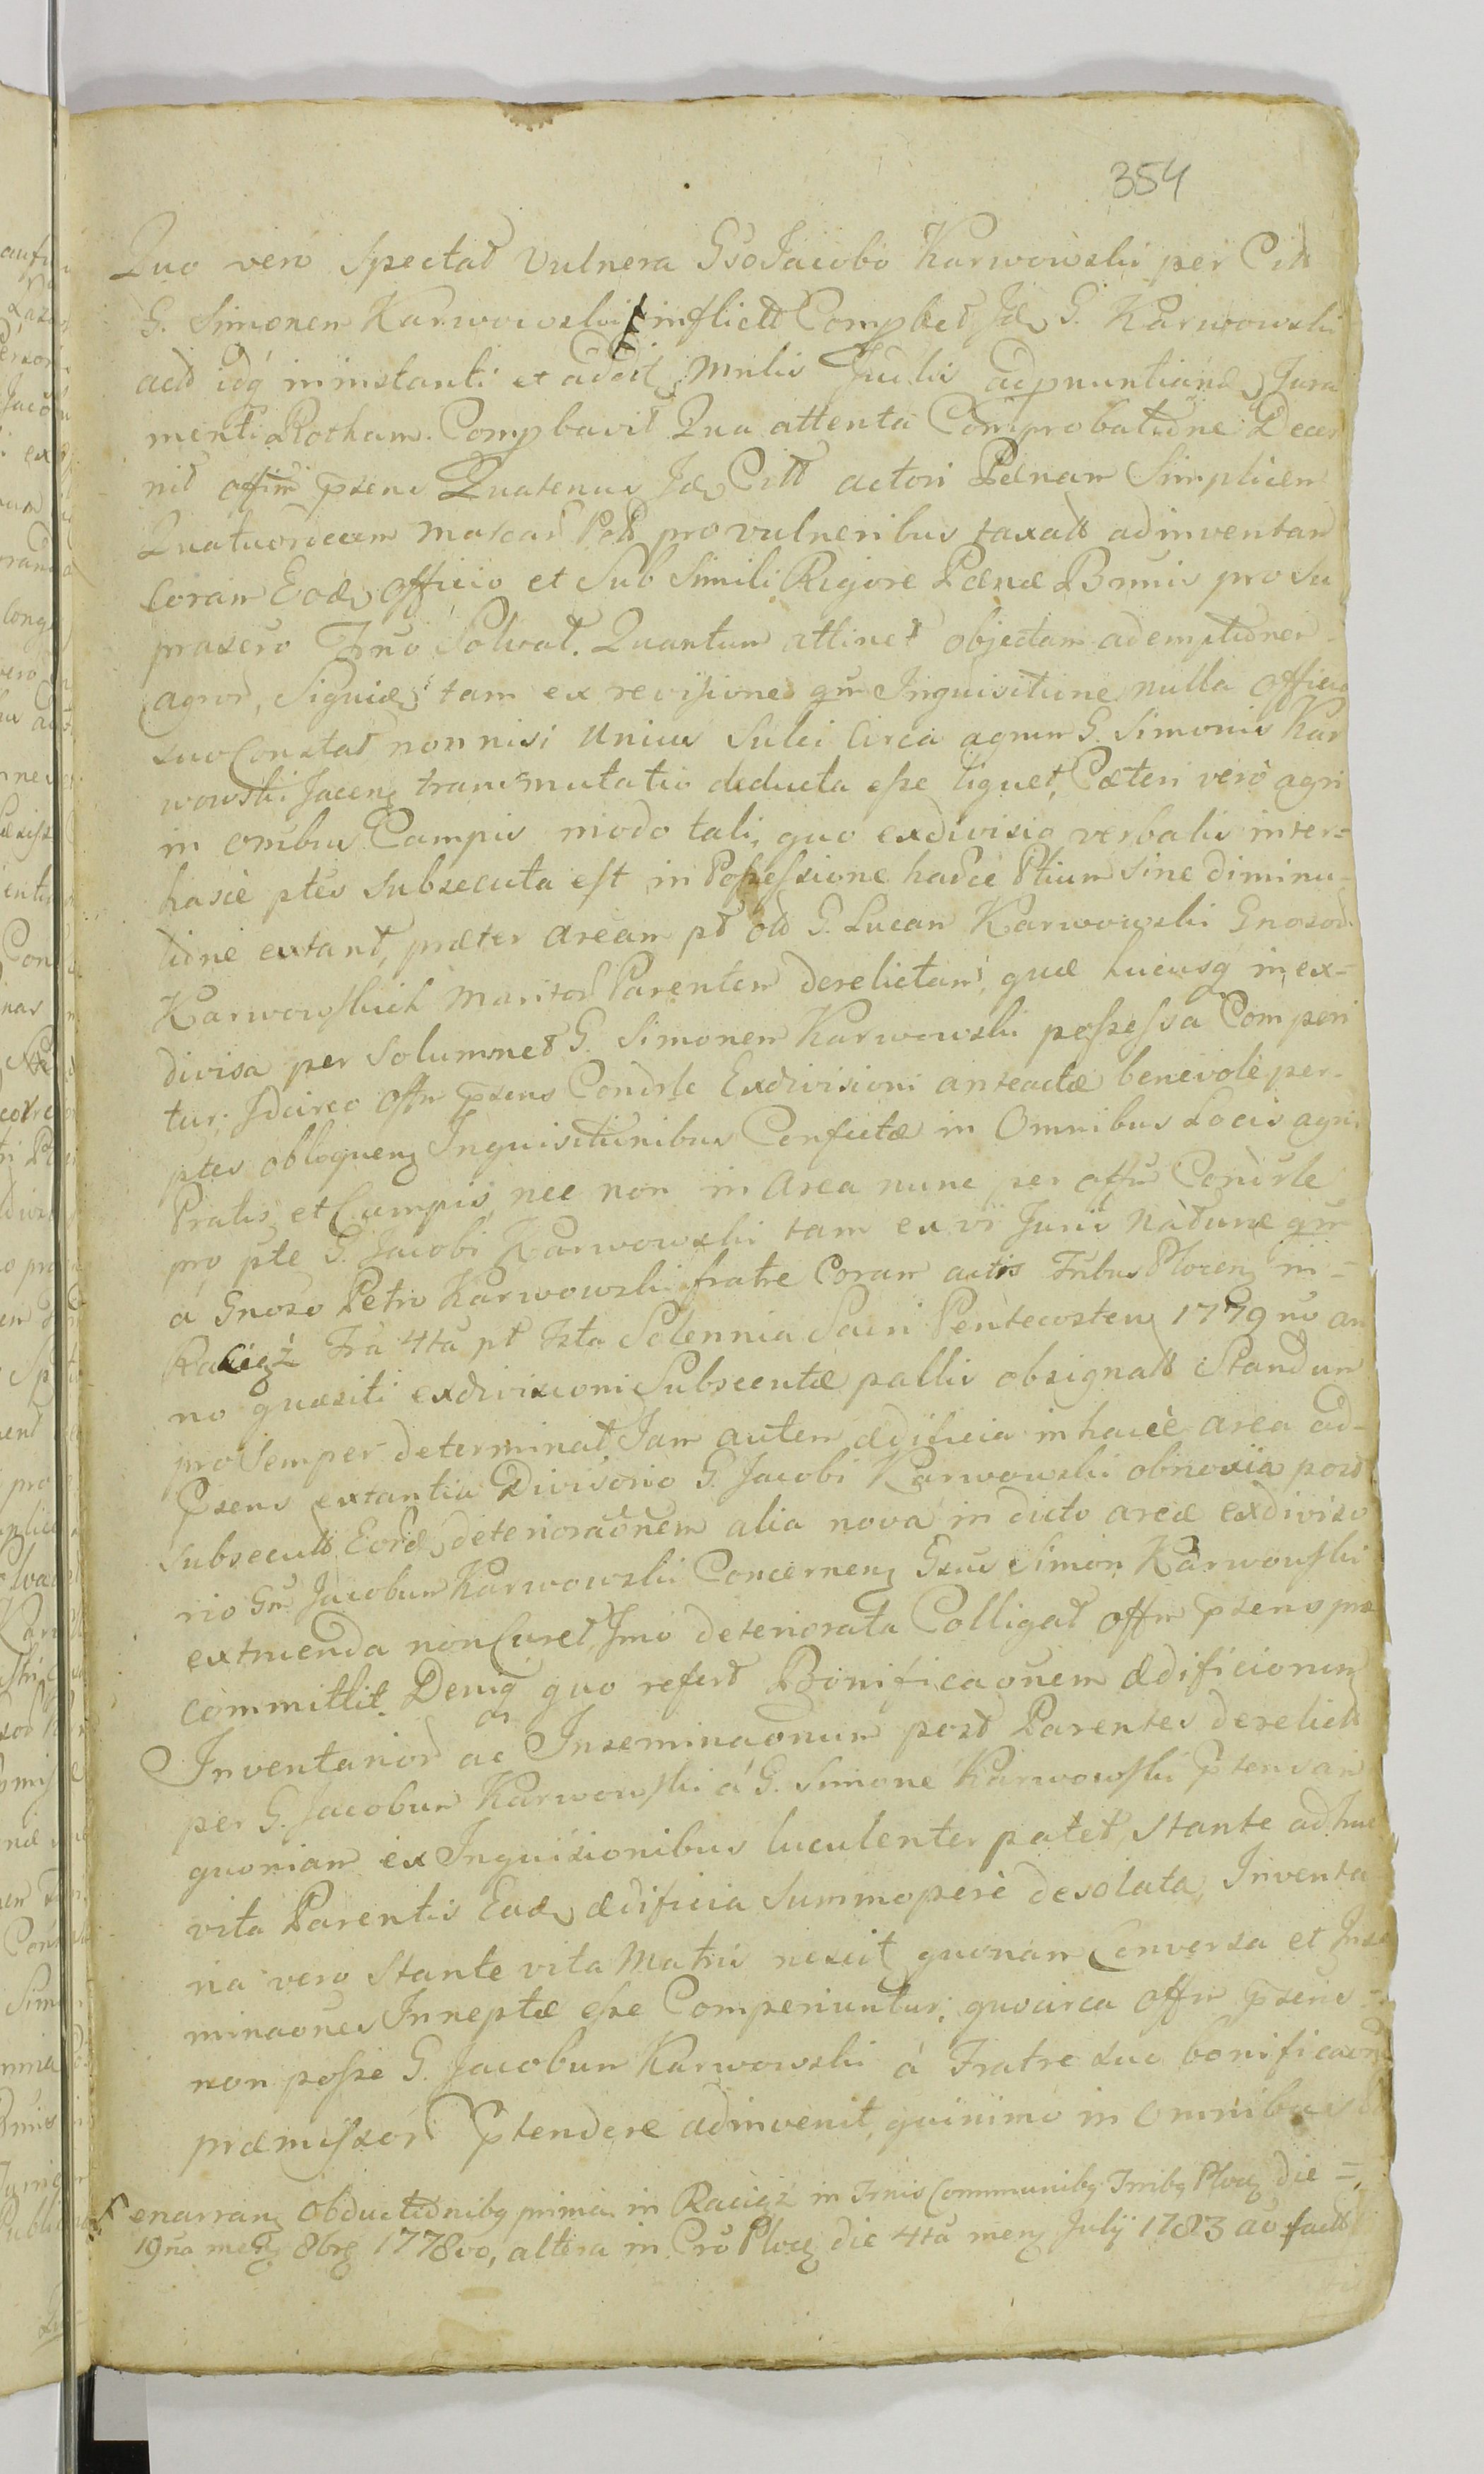 354
Quo vero Spectat Vulnera Gso Jacobo Karwowski per Citt
G. Simonem Karwowski inflictt Compbet Jd G. Karwowski
actt idq ininstanti et Mnlis Judlis adpnuntiand Jura
menti Rotham. Compbavit Qua attenta Comprobatidne Decer
nit offim pzens Quatenus Jd Citt actori Pænam Simplicem
Quatuordecem marcar Pol pro vulneribus taxatt adinventam
Coram Eod officio et Sub Simili Rigore Pænæ Bmnis pro su
praxero Trno Solvat. Quantum attinet objectam ademptidnem
agror, Siquid tam ex revisione qm Inquisitione nulla officio
suo Constat nonnisi Unius Sulci Circa agrum G. Simonis Kar
wowski Jacenz transmutatio deducta eße liquet, Cæteri verò agri
in omibus Campis modo tali, quo exdivisio verbalis inter=
hasce ptes Subsecuta est in Poßeßione hadce Ptium Sine diminu-
tidne extant, præter aream pt olb G. Lucam Karwowski Gnosod
Karwowskich Maritor Parentem derelictam, quæ hucusq in ex=
divisa per Solummet G. Simonem Karwowski poßeßa Comperi
tur; Jdcirco offm pzens Condrle Exdivisioni anteactæ benevolè per-
ptes obloquenz Inquisitunibus Confectæ in Omnibus Locis agri
Pratis, et Campis, nec non in Area nunc per offm Condrle
pro pte G. Jacobi Karwowski tam ex vi Juris Natune qm
à Gnoso Petro Karwowski fratre Coram actis Tribus Plocenz in=
Raciąż Fra 4ta pt Fsta Solennia Sacri Pentecosten 1779no an
no quæsiti exdivisioni Subsecutæ pallis obsignatt Standum
pro Semper determinat Jam autem ædificia in hacce area ad-
Pzens extantia Divisorio G. Jacobi Karwowski obnoxia post
Subsecutt Eord deterioraonem alia nova in dicto areæ exdiviso
rio Gm Jacobum Karwowski Concernenz Gsus Simon Karwowski
extruenda non Curet, Jmo deteriorata Colligat offm pzens præ
committit. Deniq quo refert Bonificaonem ædificiorum
Inventarior ac Inseminaonum post Parentes derelictt
per G. Jacobum Karwowski à G. Simone Karwowski Ptensam
quoniam ex Inquisionibus luculenter patet, Stante adhuc
vita Parentis Ead ædificia Summopere desolata, Inventa
ria vero Stante vita Matris nescit quonam Conversa et Inse
minaones Inneptæ eße Comperiuntur; quocirca offm pzens
non poße G. Jacobum Karwowski à Fratre suo bonificaon
præmißor Ptendere adinvenit, quinimo in Omnibus
enarranz Obductidnibq prima in Raciąż in Trnis Communibq Trribq Plocz die =
19na menz 8brz 1778vo, altera in Cro Plocz die 4ta menz Julij 1783 ao factt